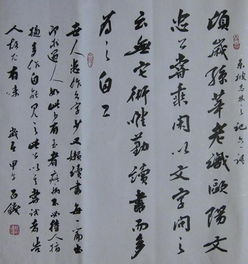 东坡志林之记六一语
頃歲孫莘老識歐陽文
忠公嘗乘間以文字問之
云無它術唯勤讀書而多
為之自工
世人患作文字少又懶讀書每一篇出
即求過人如此少有至者疵病不必待人指
擿多作自能見之此公以其嘗試者告
人故尤有味 歲在甲午